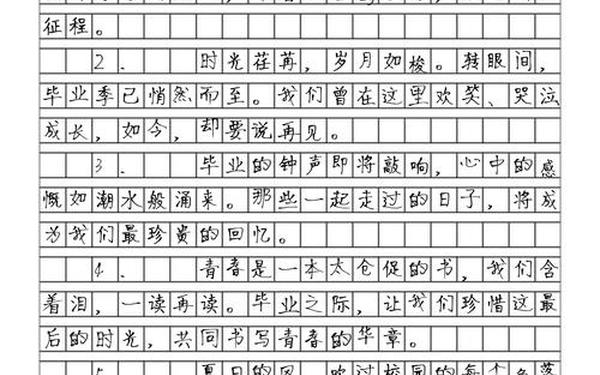 征程。
2. 时光荏苒，岁月如梭。转眼间，
毕业季已悄然而至。我们曾在这里欢笑、哭泣
成长，如今，却要说再见。
3. 毕业的钟声即将敲响，心中的感
慨如潮水般涌来。那些一起走过的日子，将成
为我们最珍贵的回忆。
4. 青春是一本太仓促的书，我们含
着泪，一读再读。毕业之际，让我们珍惜这最
后的时光，共同书写青春的华章。
5. 夏日的风，吹过校园的每个角落